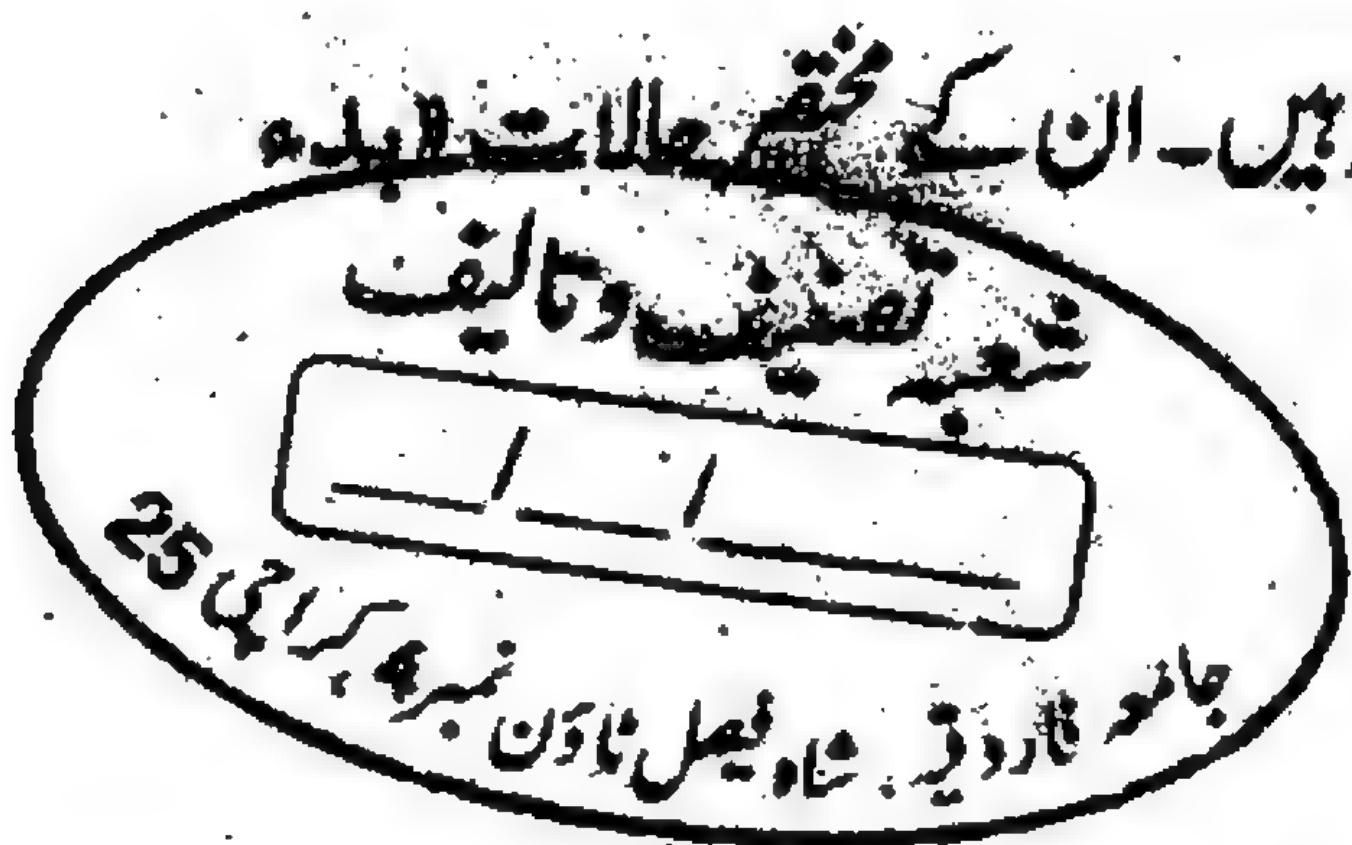 ہیں۔ ان کے مختصر حالات "بدء
شعبہ تصنیف و تالیف
جامعہ فاروقیہ، شاہ فیصل ٹاؤن نمبر ۴، کراچی 25